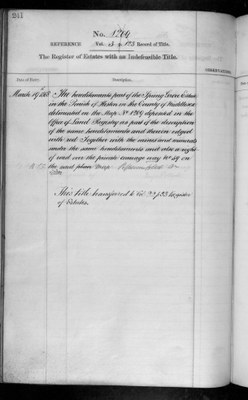 241
No. 1269
REFERENCE Vol. 5 p. 173 Record of Title.
The Register of Estates with an Indefeasible Title.
OBSERVATIONS
Date of Entry. Description.
March 19 1868 The hereditaments part of the Spring Grove Estate
in the Parish of Heston in the County of Middlesex
delineated on the Map No 1269 deposited in the
Office of Land Registry as part of the description
of the same hereditaments and thereon edged
with red. Together with the mines and minerals
under the same hereditaments and also a right
of road over the private carriage way No 59 on
the said plan
This title transferred to Vol.
of Estates.